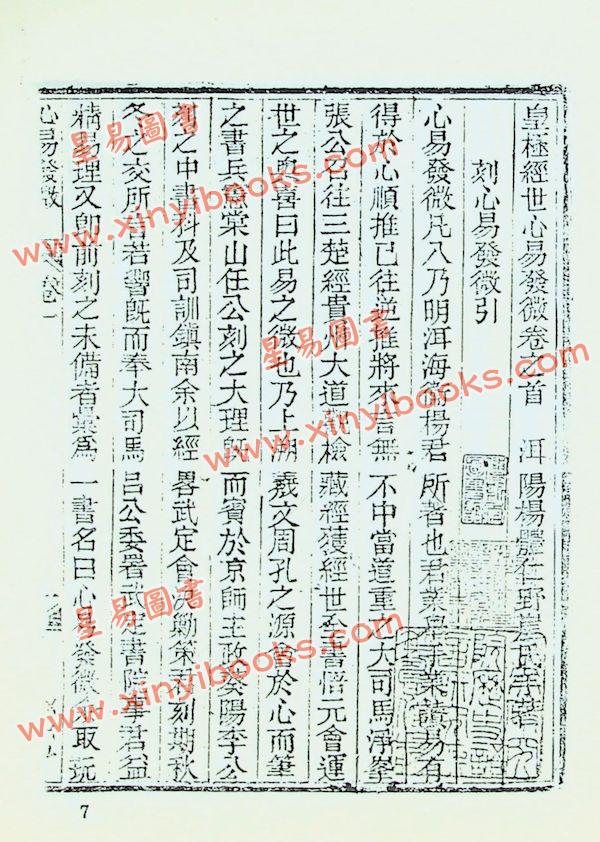 皇極經世心易發微卷之首 洱陽楊體仁野崖氏等著
刻心易發微引
心易發微凡八乃明洱海衛楊君所著也君業舉子業讀易有
得於心順推已往逆推將來言無不中當道重之大司馬淨峯
張公召往三楚經貴州大道觀檢藏經獲經世全書悟元會運
世之奧喜曰此易之微也乃上溯羲文周孔之源會於心而筆
之書兵憲棠山任公刻之大理既而賓於京師主政葵陽李公
刻之中書科及司訓鎮南余以經畧武定會先勦策有刻期秋
冬之交所占若響既而奉大司馬呂公委署武定書院事君益
精易理又即前刻之未備者彙為一書名曰心易發微 取玩
心易發微 卷一
7
星易圖書
www.xinyibooks.com
星易圖書
www.xinyibooks.com
星易圖書
www.xinyibooks.com